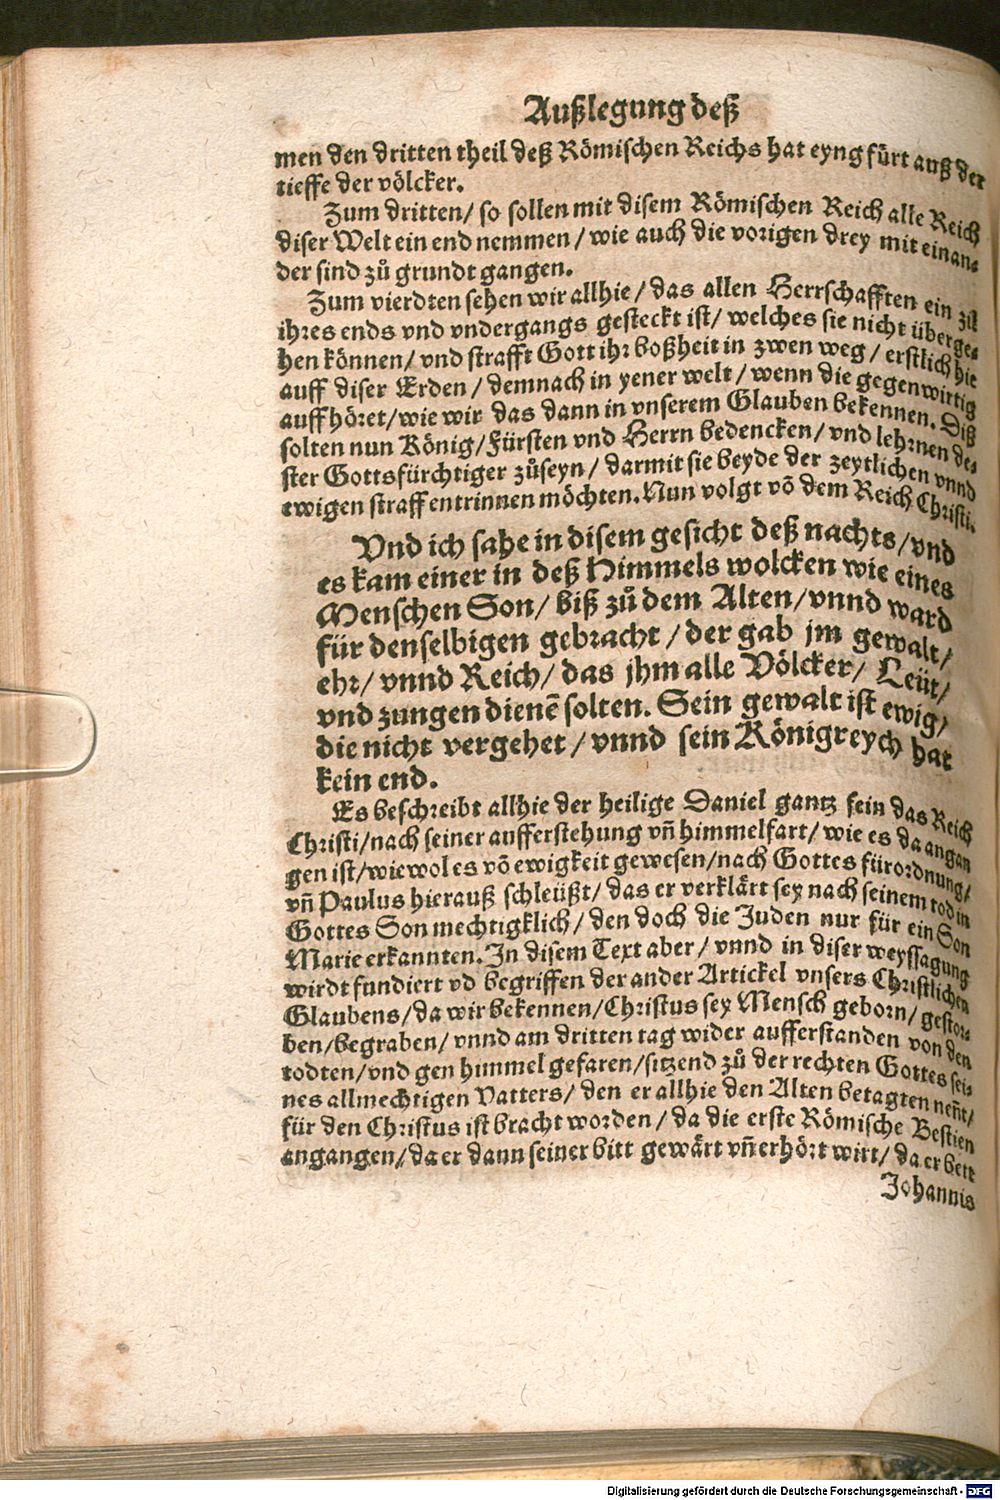 Außlegung deß
men den dritten theil deß Römischen Reichs hat eyngfürt auß der
tieffe der völcker.
Zum dritten/ so sollen mit disem Römischen Reich alle Reich
diser Welt ein end nemmen/ wie auch die vorigen drey mit einan⸗
der sind zů grundt gangen.
Zum vierdten sehen wir allhie/ das allen Herrschafften ein zil
ihres ends vnd vndergangs gesteckt ist/ welches sie nicht überge⸗
hen können/ vnd strafft Gott ihr boßheit in zwen weg/ erstlich hie
auff diser Erden/ demnach in yener welt/ wenn die gegenwirtig
auffhöret/ wie wir das dann in vnserem Glauben bekennen. Diß
solten nun König/ Fürsten vnd Herrn bedencken/ vnd lehrnen de⸗
ster Gottsfürchtiger zůseyn/ darmit sie beyde der zeytlichen vnnd
ewigen straff entrinnen möchten. Nun volgt võ dem Reich Christi.
Vnd ich sahe in disem gesicht deß nachts/ vnd
es kam einer in deß Himmels wolcken wie eines
Menschen Son/ biß zů dem Alten/ vnnd ward
für denselbigen gebracht/ der gab jm gewalt/
ehr/ vnnd Reich/ das jhm alle Völcker/ Leüt/
vnd zungen dienẽ solten. Sein gewalt ist ewig/
die nicht vergehet/ vnnd sein Königreych hat
kein end.
Es beschreibt allhie der heilige Daniel gantz fein das Reich
Christi/ nach seiner aufferstehung vñ himmelfart/ wie es da angan
gen ist/ wiewol es võ ewigkeit gewesen/ nach Gottes fürordnung/
vñ Paulus hierauß schleüßt/ das er verklärt sey nach seinem tod in
Gottes Son mechtigklich/ den doch die Juden nur für ein Son
Marie erkannten. In disem Text aber/ vnnd in diser weyssagung
wirdt fundiert vd begriffen der ander Artickel vnsers Christlichen
Glaubens/ da wir bekennen/ Christus sey Mensch geborn/ gestor⸗
ben/ begraben/ vnnd am dritten tag wider aufferstanden von den
todten/ vnd gen hummel gefaren/ sitzend zů der rechten Gottes sei⸗
nes allmechtigen Vatters/ den er allhie den Alten betagten neñt/
für den Christus ist bracht worden/ da die erste Römische Bestien
angangen/ da er dann seiner bitt gewärt vñ erhört wirt/ da er bett
Johannis
Digitalisierung gefördert durch die Deutsche Forschungsgemeinschaft - DFG